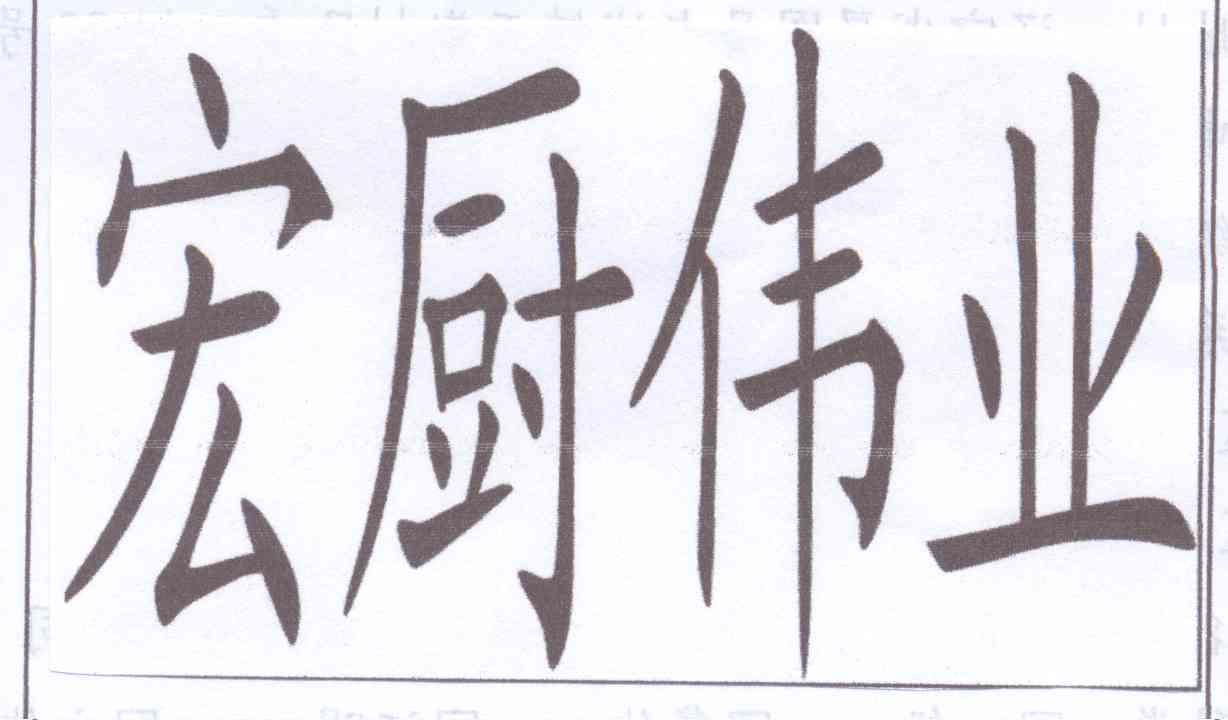 宏厨伟业